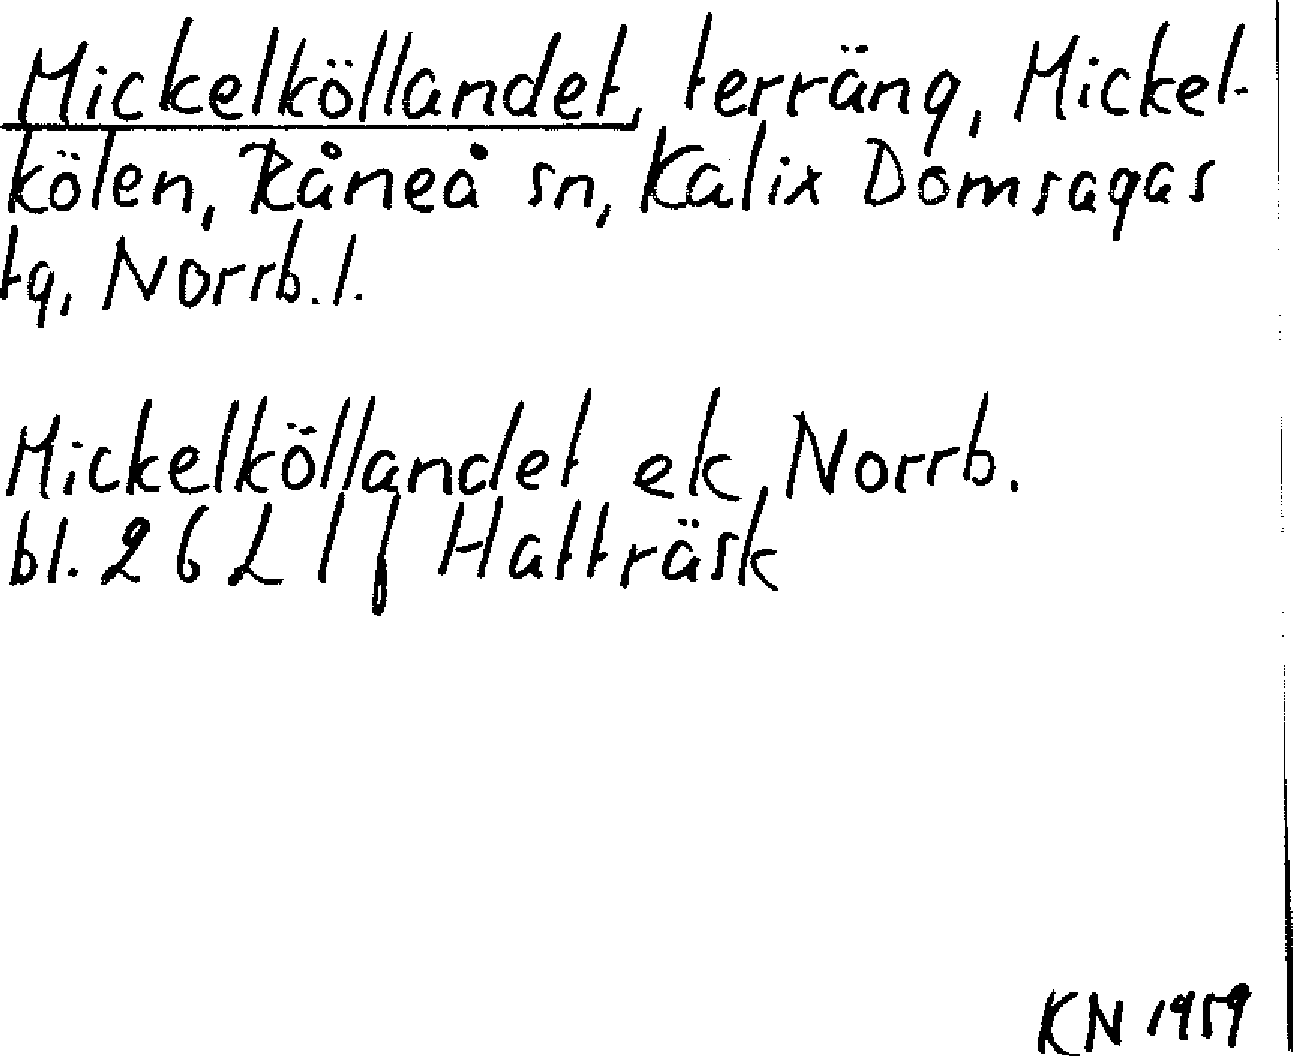 Mickelköllandet, terräng, Mickel-
kölen, Råneå sn, Kalix Domsagas
tg, Norrb. l.
Mickelköllandet ek, Norrb.
bl. 26 L 1 f Hatträsk
KN 1959